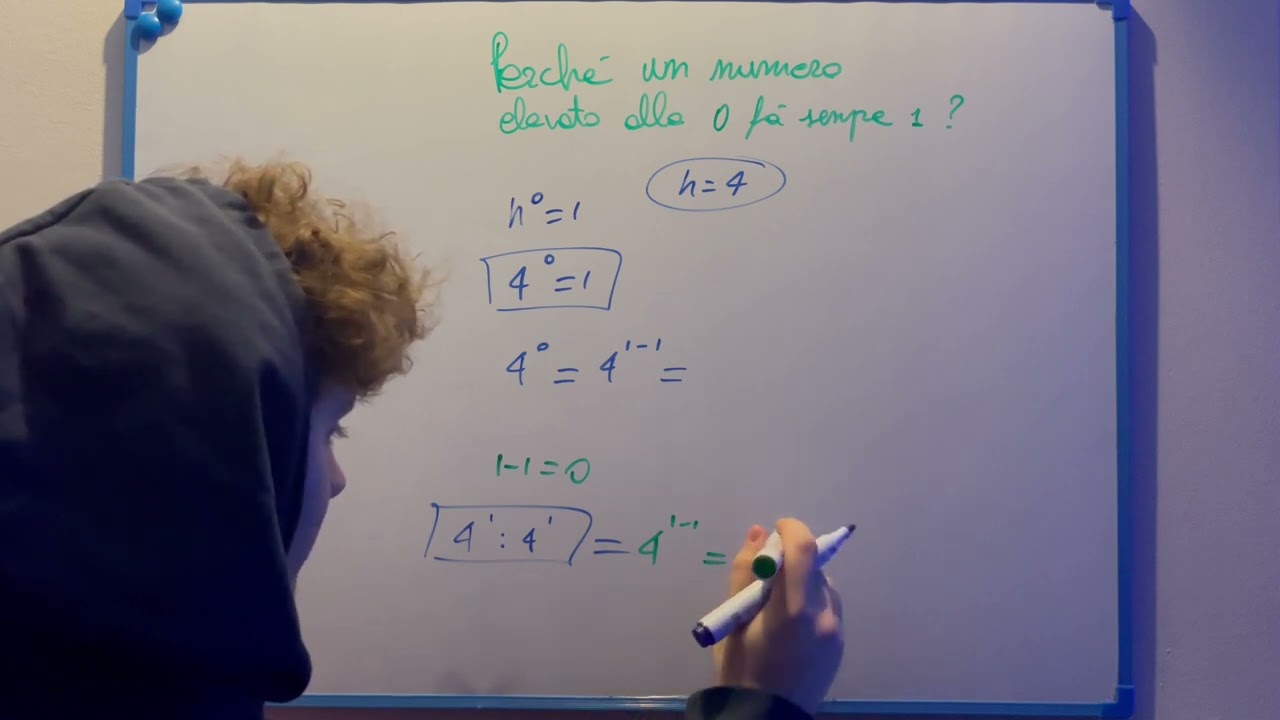 Perché un numero
elevato alla 0 fà sempre 1 ?
n=4
n⁰=1
4⁰=1
4⁰=4¹⁻¹=
1-1=0
4¹:4¹=4¹⁻¹=